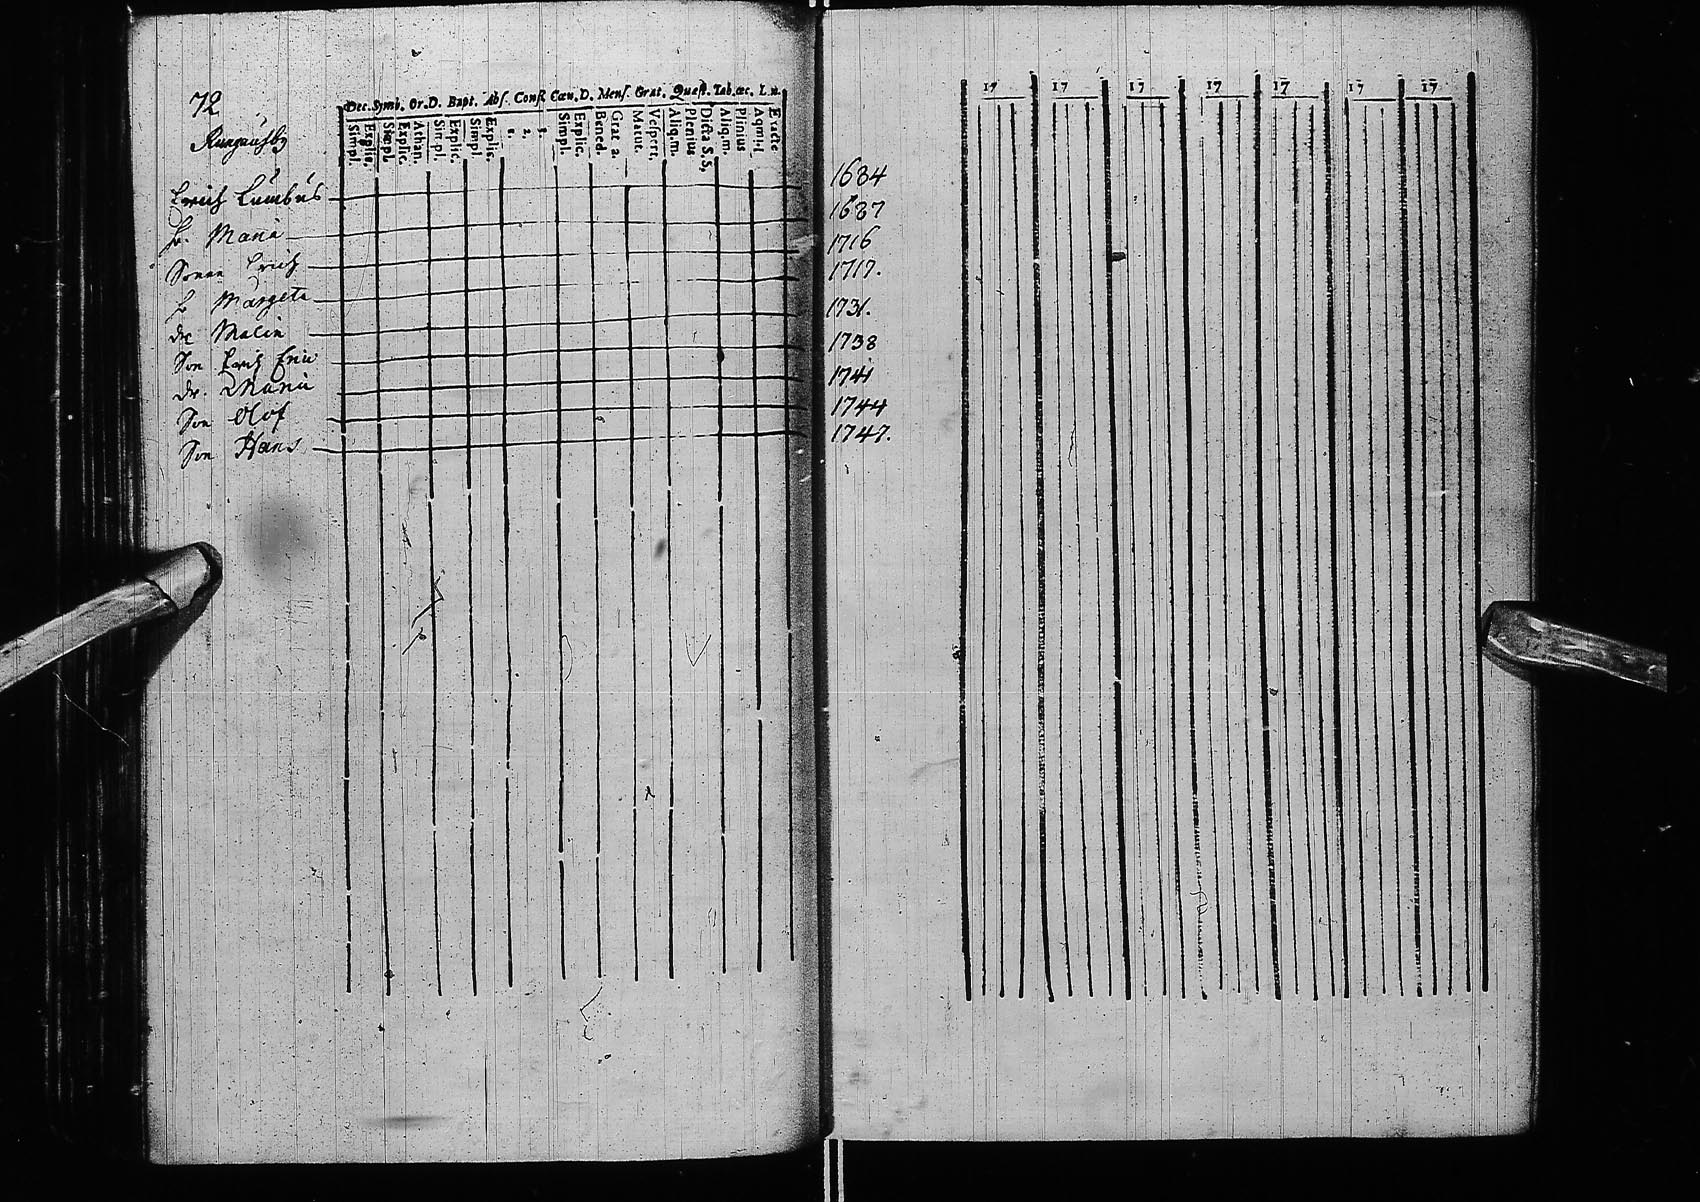 72
Dec. Symb. Or. D. Bapt. Abs. Conf. Cœn. D. Mens. Grat. Quæst. Tab. œc. I. n.
Simpl. Explic. Simpl. Explic. Athan. Simpl. Explic. Simpl. Explic. 1. 2. 3. Simpl. Explic. Bened. Grat a. Matut. Vespert. Aliq. m. Plenius Dicta S. S. Aliq. m. Plinius Exacte
17 17 17 17 17 17 17
Erich 1684
h. Maria 1687
Sonen Erich 1716
h Margeta 1717.
dr Malin 1731.
Son Erich 1738
dr. Maria 1741
Son Olof 1744
Son Hans 1747.